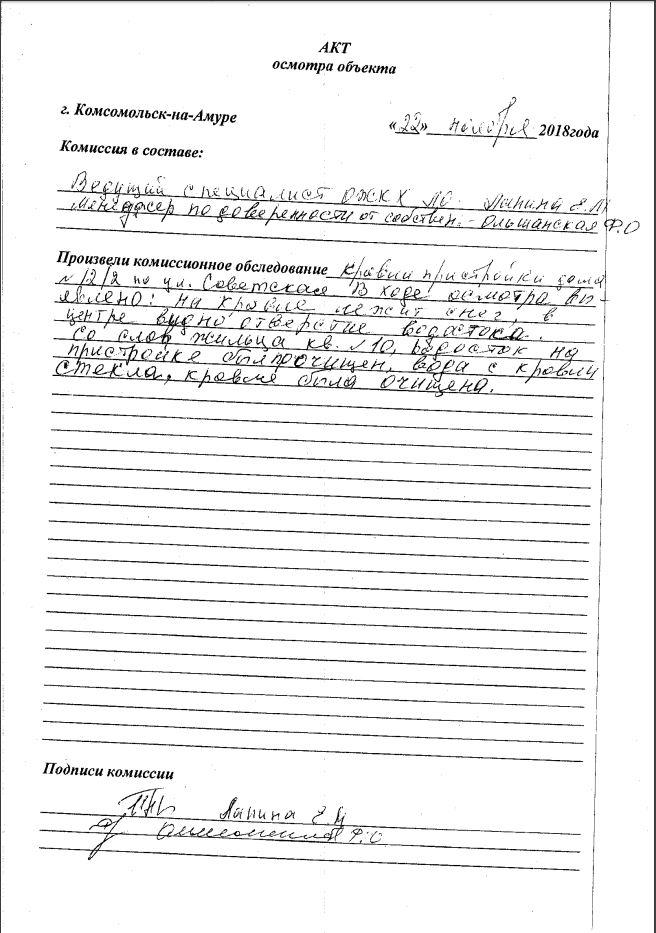 АКТ
осмотра объекта
г. Комсомольск-на-Амуре
«22» ноября 2018года
Комиссия в составе:
Ведущий специалист ОЖКХ ЛО. Лапина Е.М
Менеджер по доверенности от собствен. - Ольшанская Ф.О
Произвели комиссионное обследование кровли пристройки дома
№ 12/2 по ул. Советская В ходе осмотра вы-
явлено: на кровле лежит снег, в
центре видно отверстие водастока.
Со слов жильца кв. №10, водосток на
пристройке был прочищен, вода с кровли
стекла, кровля была очищена.
Подписи комиссии
Лапина Е М
Ф.О